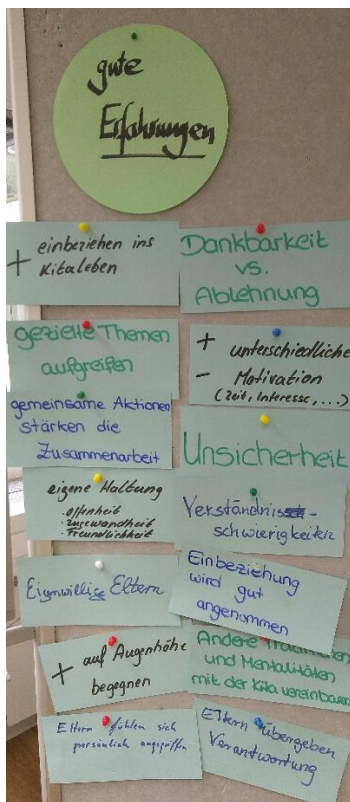 gute
Erfahrungen
+ einbeziehen ins
Kitaleben
Dankbarkeit
vs.
Ablehnung
gezielte Themen
aufgreifen
+ unterschiedliche
- Motivation
(Zeit, Interesse, ...)
gemeinsame Aktionen
stärken die
Zusammenarbeit
Unsicherheit
eigene Haltung
· offenheit
· zugewandheit
· Freundlichkeit
Verständnis-
schwierigkeiten
Eigenwillige Eltern
Einbeziehung
wird gut
angenommen
+ auf Augenhöhe
begegnen
Andere Traditionen
und Mentalitäten
mit der Kita vereinbaren
Eltern fühlen sich
persönlich angegriffen
Eltern übergeben
Verantwortung